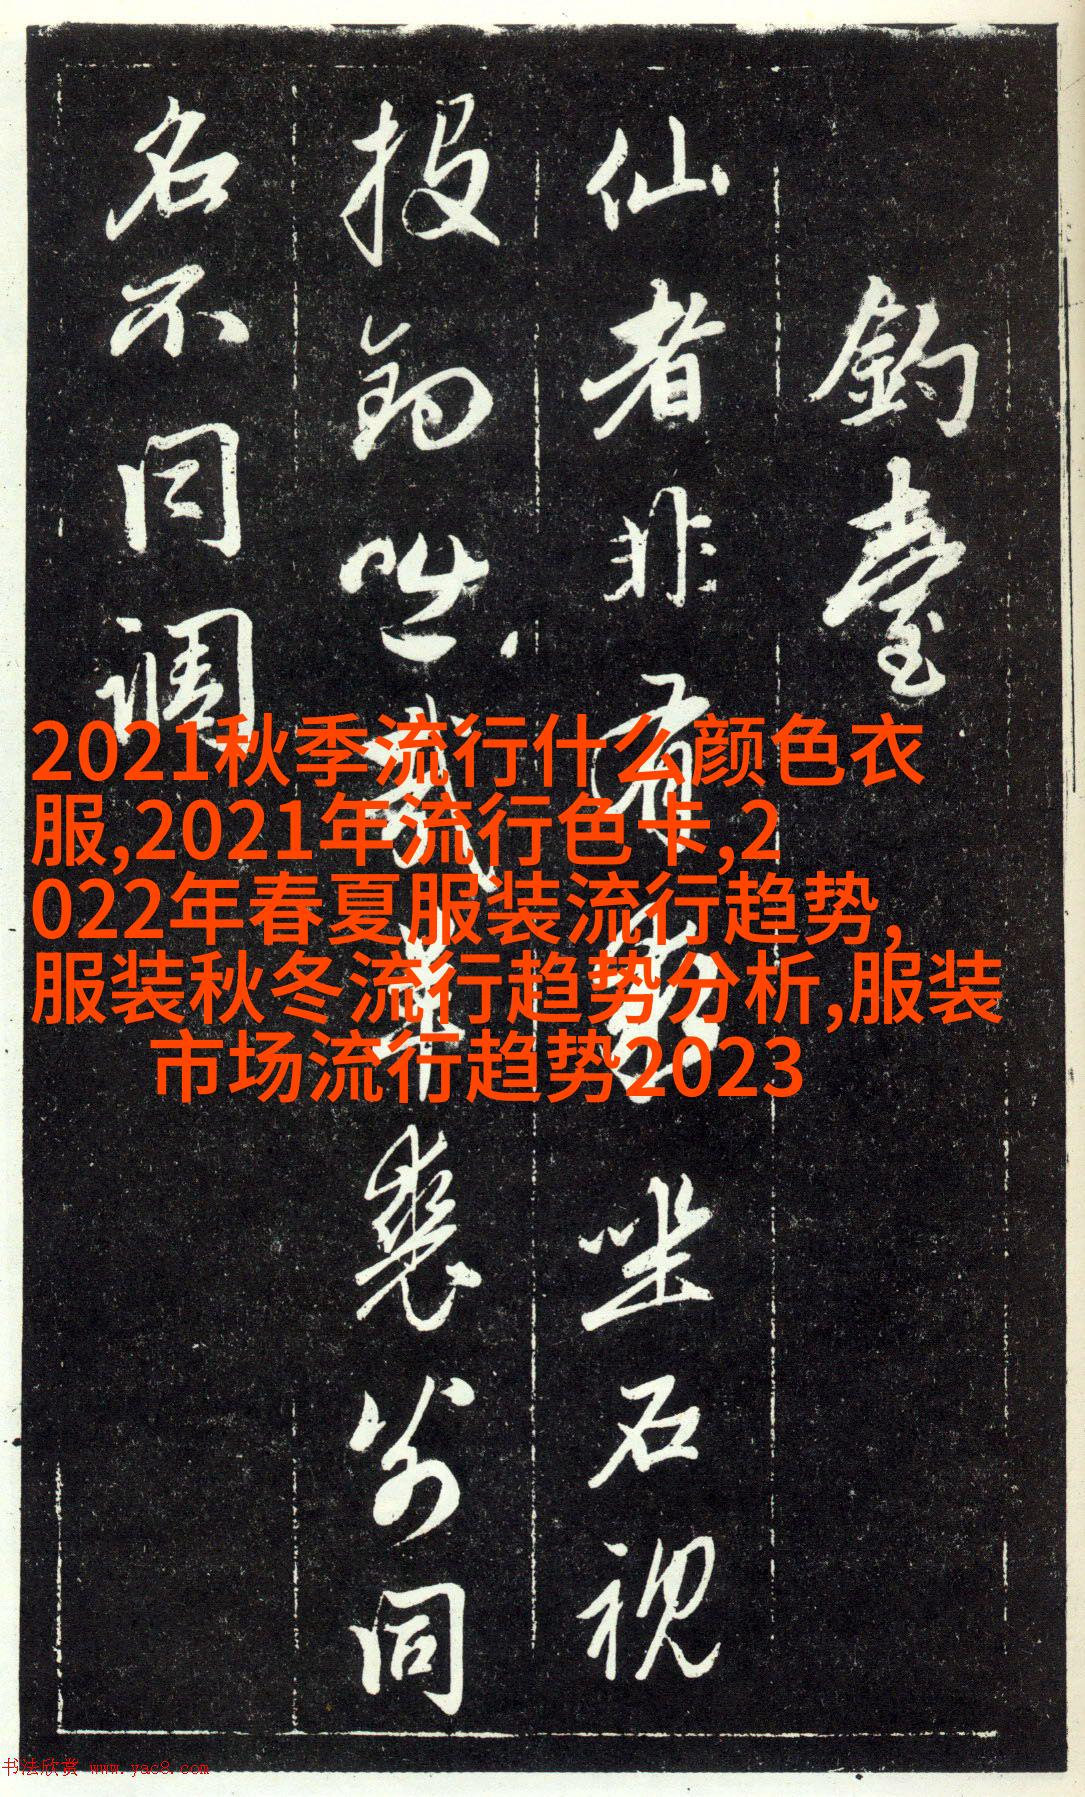 釣臺
仙者非有羣坐石視
投釣咄哉巢裘為同
名不同調
2021秋季流行什么颜色衣
服,2021年流行色卡,2
022年春夏服装流行趋势,
服装秋冬流行趋势分析,服装
市场流行趋势2023
书法欣赏 www.yac8.com